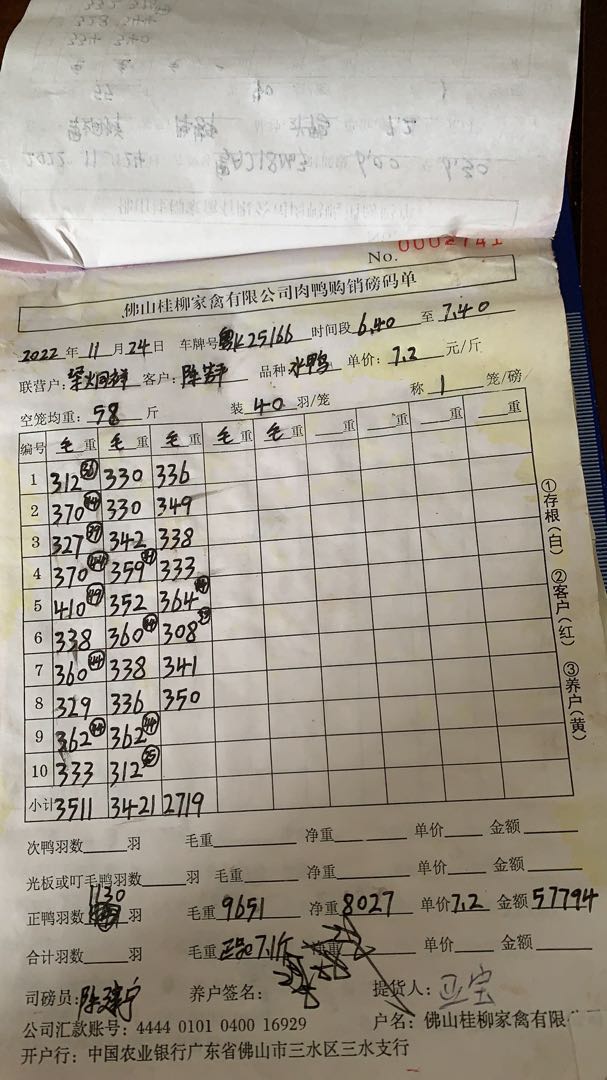 No. 0002741
佛山桂柳家禽有限公司肉鸭购销磅码单
2022 年 11 月 24 日 车牌号 粤K25166 时间段 6.40 至 7.40
联营户: 客户: 品种 水鸭 单价: 7.2 元/斤
空笼均重: 58 斤 装 40 羽/笼 称 1 笼/磅
编号 毛重 毛重 毛重 毛重 毛重 重 重 重 重
1 312 330 336
2 370 330 349
3 327 342 338
4 370 44 359 333
5 410 49 352 364
6 338 360 308
7 360 44 338 341
8 329 336 350
9 362 362
10 333 312
小计 3511 3421 2719
①存根(白) ②客户(红) ③养户(黄)
次鸭羽数 羽 毛重 净重 单价 金额
光板或叮毛鸭羽数 羽 毛重 净重 单价 金额
1130
正鸭羽数 羽 毛重 9651 净重 8027 单价 7.2 金额 57794
合计羽数 羽 毛重 7.1斤 净重 单价 金额
司磅员: 养户签名: 提货人: 亚宝
公司汇款账号: 4444 0101 0400 16929 户名: 佛山桂柳家禽有限
开户行: 中国农业银行广东省佛山市三水区三水支行